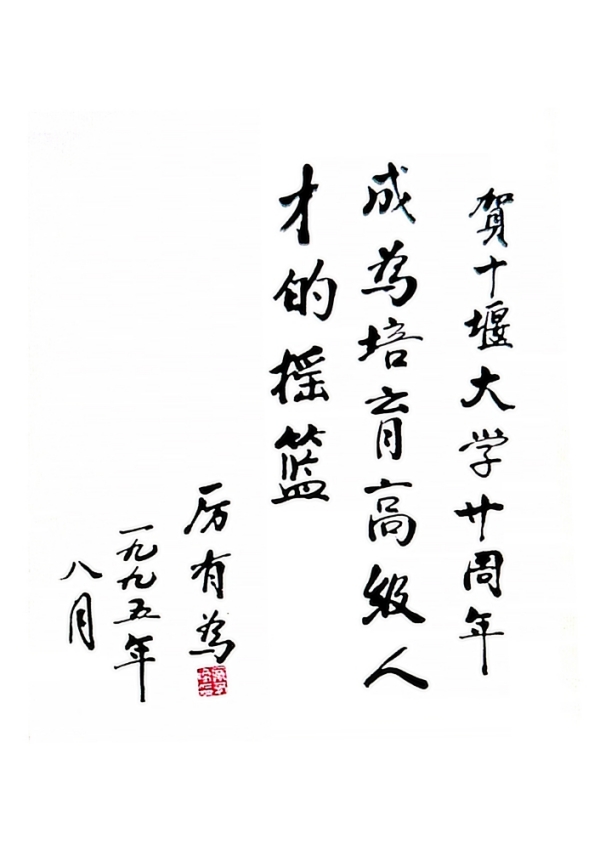 賀十堰大学廿周年
成為培育高级人
才的摇篮
厉有為
一九九五年
八月